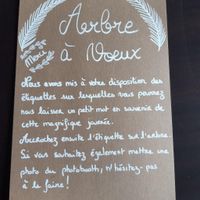 Arbre
à Voeux
Merci
Nous avons mis à votre disposition des
étiquettes sur lesquelles vous pouvez
nous laisser un petit mot en souvenir de
cette magnifique journée.
Accrochez ensuite l'étiquette sur l'arbre.
Si vous souhaitez également mettre une
photo du photobooth, n'hésitez-pas
à le faire!